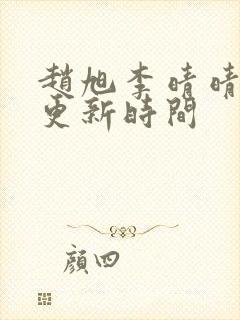 趙旭李晴晴
更新時間
顏四